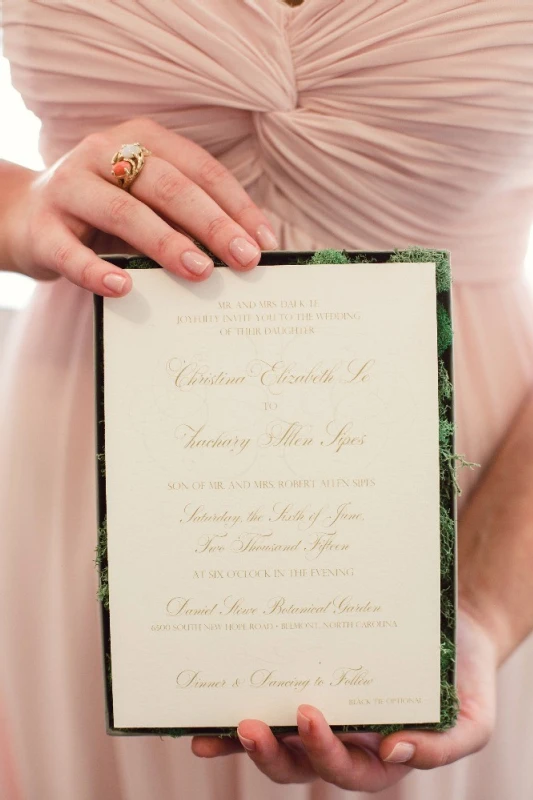 MR. AND MRS. LE
JOYFULLY INVITE YOU TO THE WEDDING
OF THEIR DAUGHTER
Christina Elizabeth Le
TO
Zachary Allen Sipes
SON OF MR. AND MRS. ROBERT ALLEN SIPES
Saturday, the Sixth of June,
Two Thousand Fifteen
AT SIX O'CLOCK IN THE EVENING
Daniel Stowe Botanical Garden
6500 SOUTH NEW HOPE ROAD • BELMONT, NORTH CAROLINA
Dinner & Dancing to Follow
BLACK TIE OPTIONAL